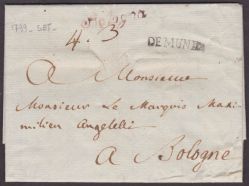 1799 - SET.
4. 3
DE MUNIC
A Monsieur
Monsieur Le Marquis Maxi
milien Angelelli
a Bologne